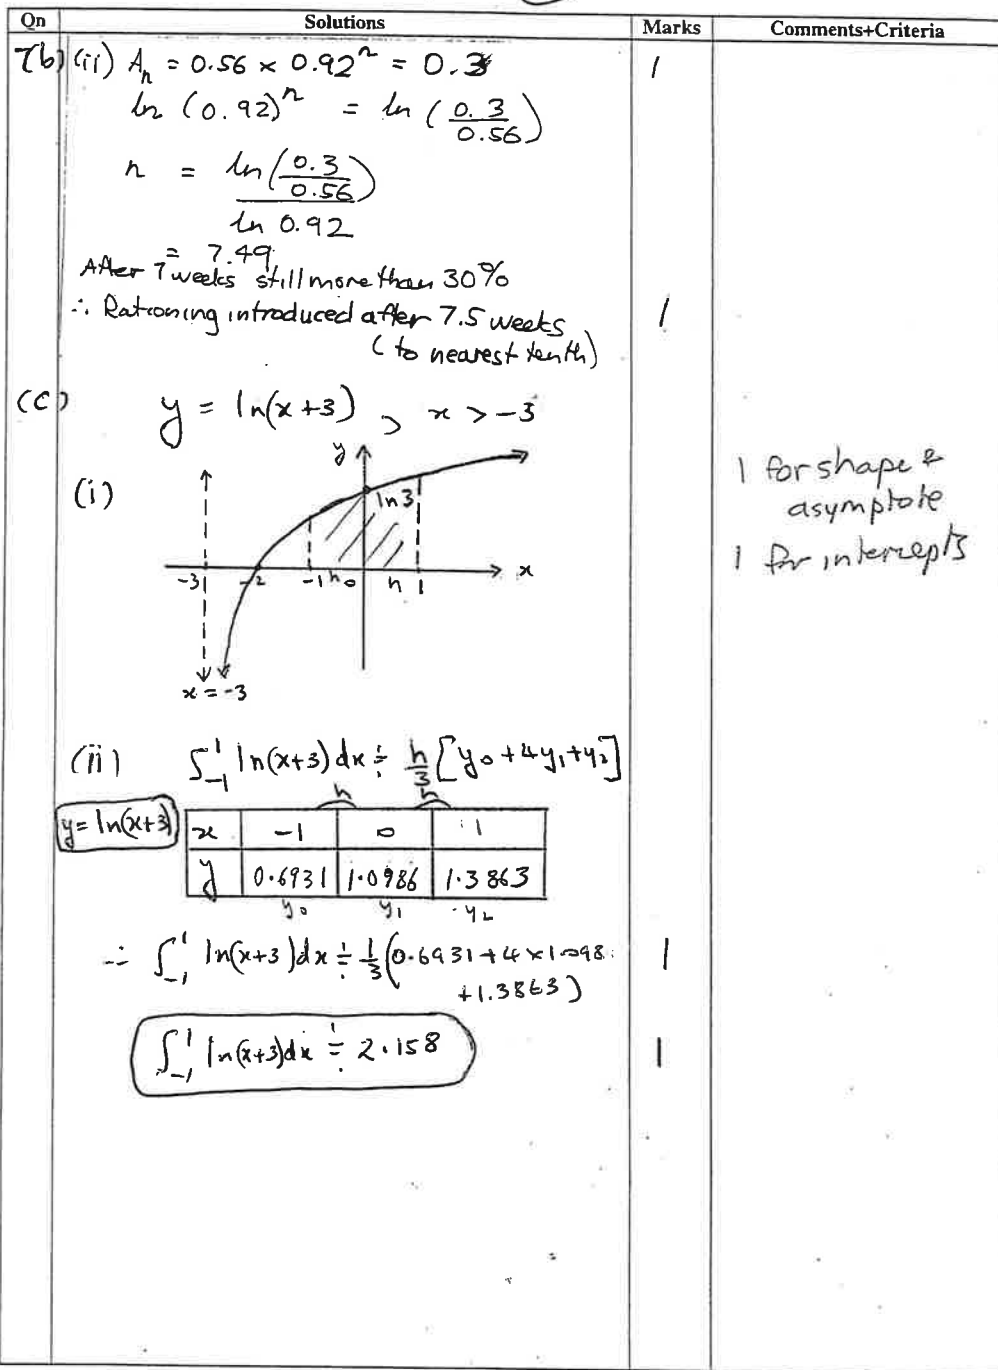 Qn Solutions Marks Comments+Criteria
7(b) (ii) Aₙ = 0.56 × 0.92ⁿ = 0.3 1
ln (0.92)ⁿ = ln (0.3/0.56)
n = ln(0.3/0.56) / ln 0.92
= 7.49
After 7 weeks still more than 30%
∴ Rationing introduced after 7.5 weeks 1
(to nearest tenth)
(c) y = ln(x+3), x > -3
(i)
y
ln3
-3 -2 -1 h 0 h 1 x
x = -3
1 for shape &
asymptote
1 for intercepts
(ii) ∫₋₁¹ ln(x+3) dx ≑ h/3 [y₀ + 4y₁ + y₂]
h h
y = ln(x+3) x -1 0 1
y 0.6931 1.0986 1.3863
y₀ y₁ y₂
∴ ∫₋₁¹ ln(x+3)dx ≑ 1/3 (0.6931 + 4 × 1.098 1
+1.3863)
∫₋₁¹ ln(x+3)dx ≑ 2.158 1